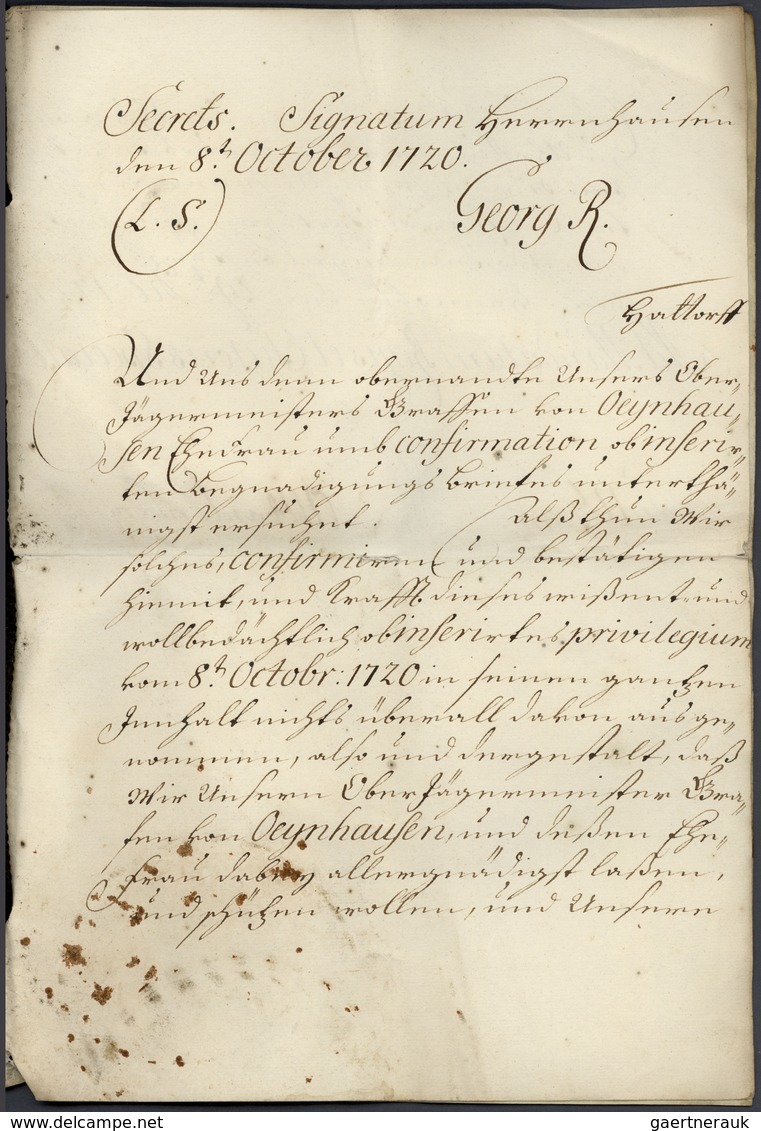 Secrets. Signatum Herrnhausen
den 8.t. October 1720.
(L. S.) Georg R.
Hattorff
Und Uns denn obernandte Unsers Ober-
Jägermeisters Graffen von Oeynhau-
sen Ehefrau umb confirmation obinserir-
ten Begnadigungs Briefes unterthä-
nigst ersuchet. Alß thun Wir
solches, confirmiren und bestätigen
hiemit, und Krafft dieses wißent- und
wollbedächtlich obinserirtes privilegium
vom 8.t. Octobr: 1720 in seinen gantzen
Innhalt nichts überall davon ausge-
nommen, also und dergestalt, daß
Wir Unsern Ober Jägermeister Gra-
fen von Oeynhausen, und deßen Ehe-
Frau dabey allergnädigst laßen,
und schützen wollen, und Unsere
delcampe.net
gaertnerauk